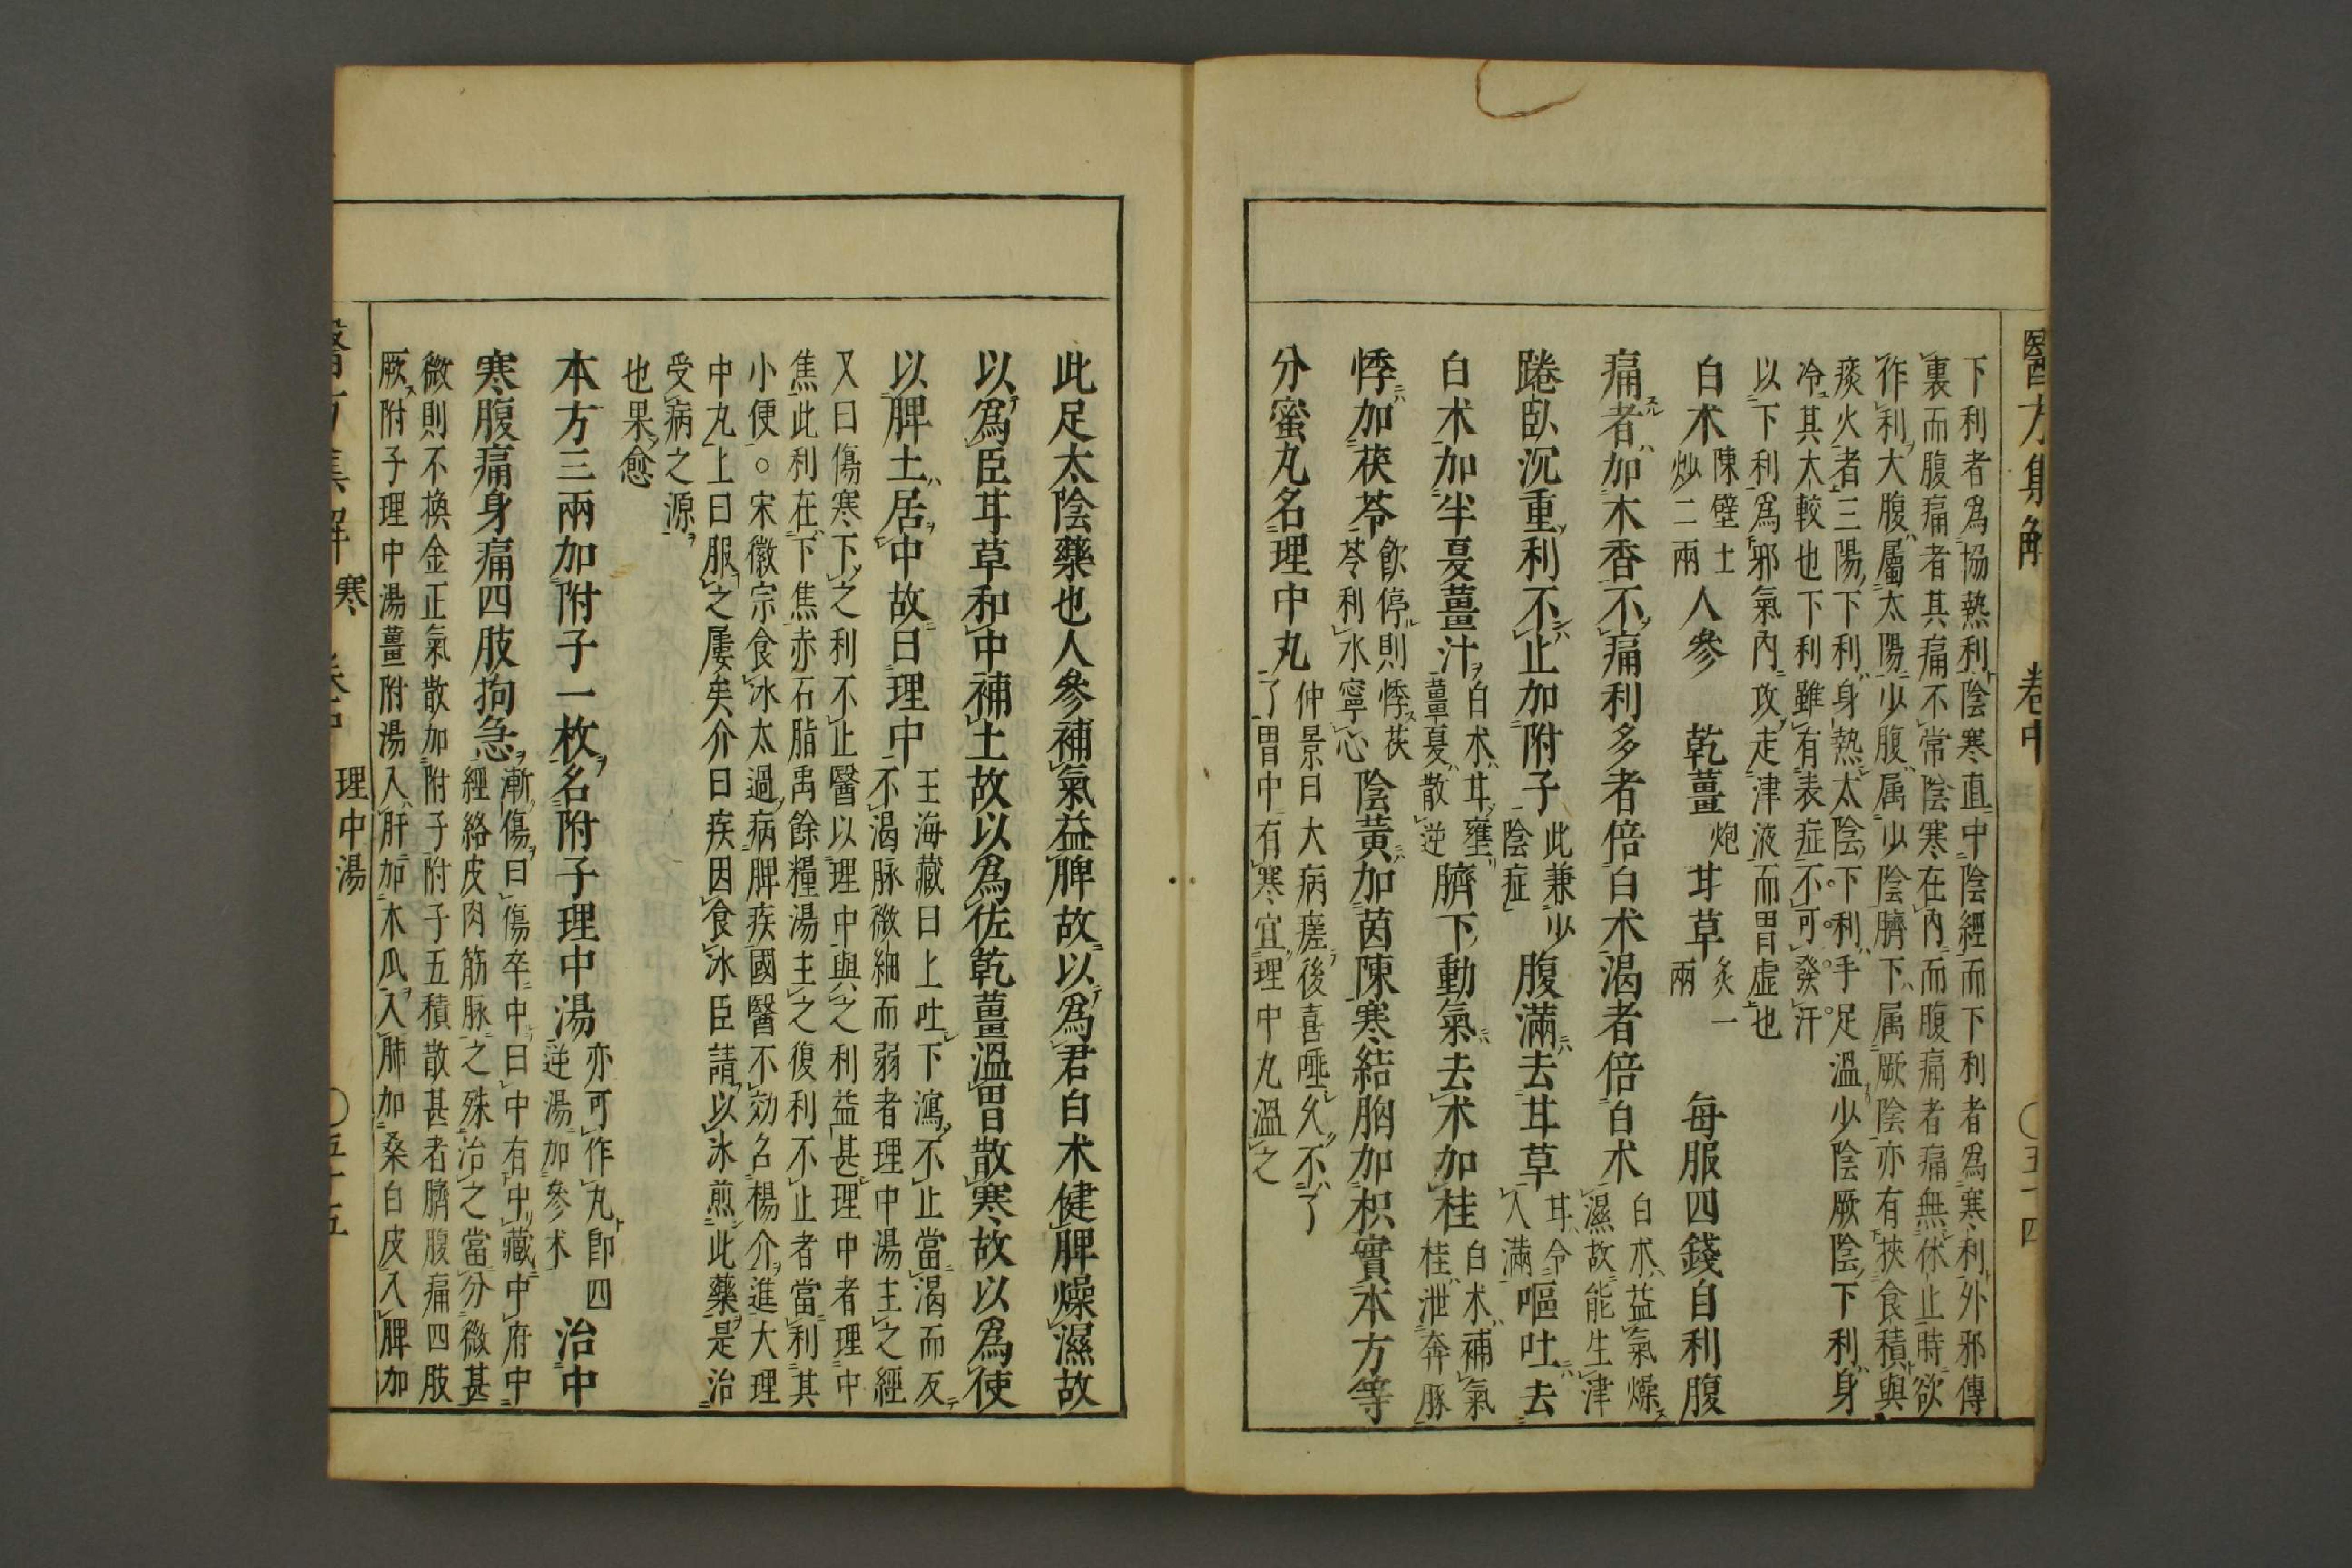 醫方集解　卷中　〇五十四
下利者為協熱利陰寒直中陰經而下利者為寒利外邪傳
裏而腹痛者其痛不常陰寒在內而腹痛者痛無休止時欲
作利大腹屬太陽少腹属少陰臍下属厥陰亦有挾食積與
痰火者三陽下利身熱太陰下利手足溫少陰厥陰下利身
冷其大較也下利雖有表症不可發汗
以下利為邪氣內攻走津液而胃虛也
白朮陳壁土炒二兩　人參　乾薑炮　甘草炙一兩　每服四錢自利腹
痛者加木香不痛利多者倍白朮渴者倍白朮白朮益氣燥濕故能生津
踡臥沉重利不止加附子此兼少陰症腹滿去甘草甘令人滿嘔吐去
白朮加半夏薑汁白朮甘壅薑夏散逆臍下動氣去朮加桂白朮補氣桂泄奔豚
悸加茯苓飲停則悸茯苓利水寧心陰黃加茵陳寒結胸加枳實本方等
分蜜丸名理中丸仲景曰大病瘥後喜唾久不了了胃中有寒宜理中丸溫之
此足太陰藥也人參補氣益脾故以為君白朮健脾燥濕故
以為臣甘草和中補土故以為佐乾薑溫胃散寒故以為使
以脾土居中故曰理中王海藏曰上吐下瀉不止當渴而反不渴脉微細而弱者理中湯主之經
又曰傷寒下之利不止醫以理中與之利益甚理中者理中
焦此利在下焦赤石脂禹餘糧湯主之復利不止者當利其
小便。宋徽宗食冰太過病脾疾國醫不効召楊介進大理
中丸上曰服之屢矣介曰疾因食冰臣請以冰煎此藥是治
受病之源
也果愈
本方三兩加附子一枚名附子理中湯亦可作丸即四逆湯加參朮治中
寒腹痛身痛四肢拘急漸傷曰傷卒中曰中有中藏中府中經絡皮肉筋脉之殊治之當分微甚
微則不換金正氣散加附子附子五積散甚者臍腹痛四肢
厥附子理中湯薑附湯入肝加木瓜入肺加桑白皮入脾加
醫方集解　寒　卷中　理中湯　〇五十五